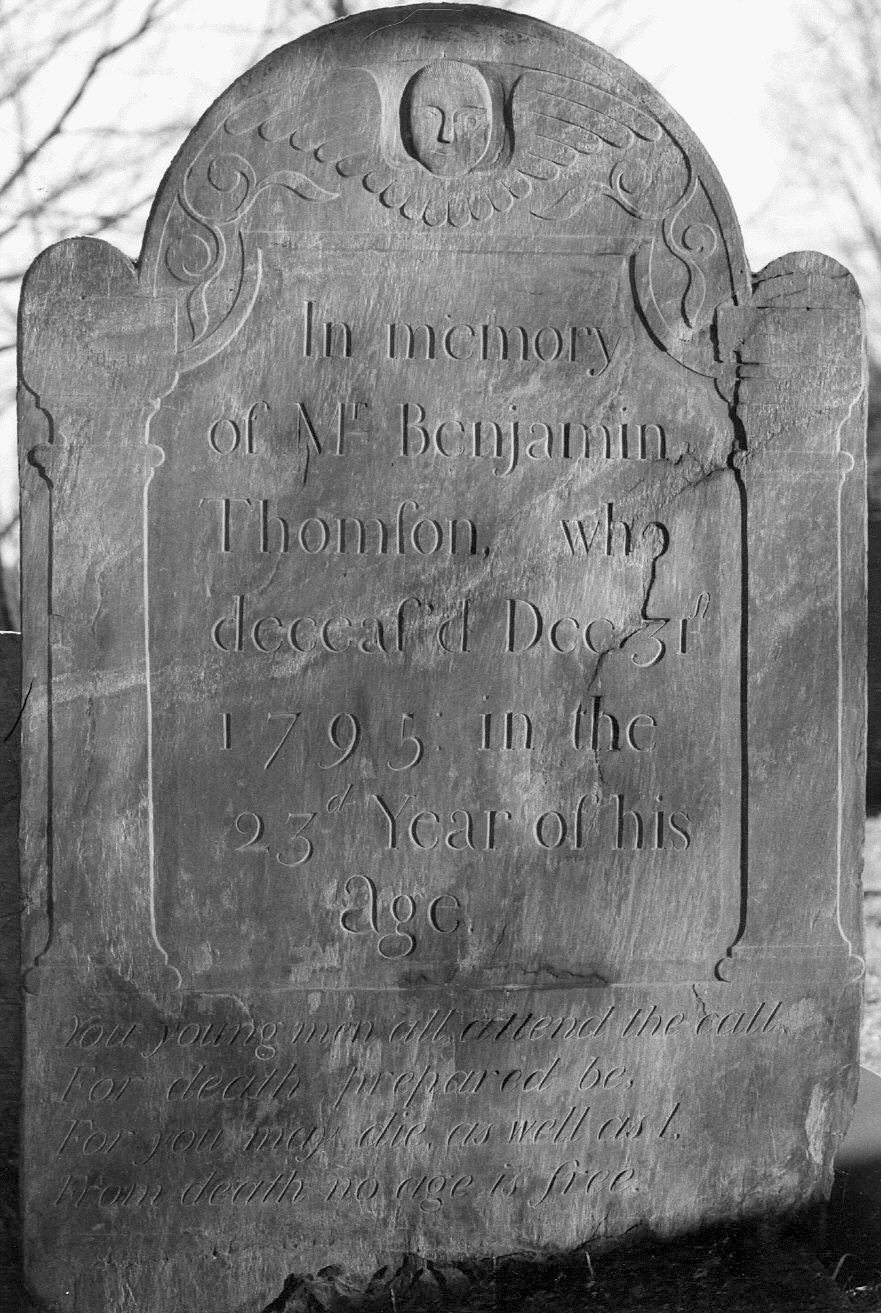 In memory
of Mr Benjamin
Thomſon, who
deceaſ'd Dec 31ſt
1795: in the
23d Year of his
age.
You young men all, attend the call,
For death prepared be,
For you may die, as well as I,
From death no age is free.